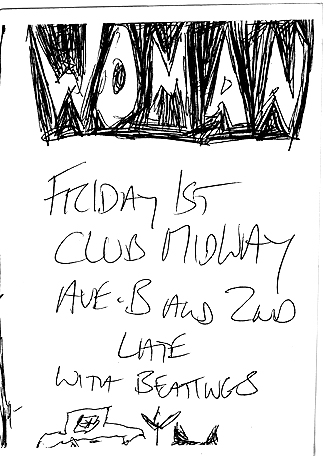 WOMAN
FRIDAY 1ST
CLUB MIDWAY
AVE. B AND 2ND
LATE
WITH BEATINGS